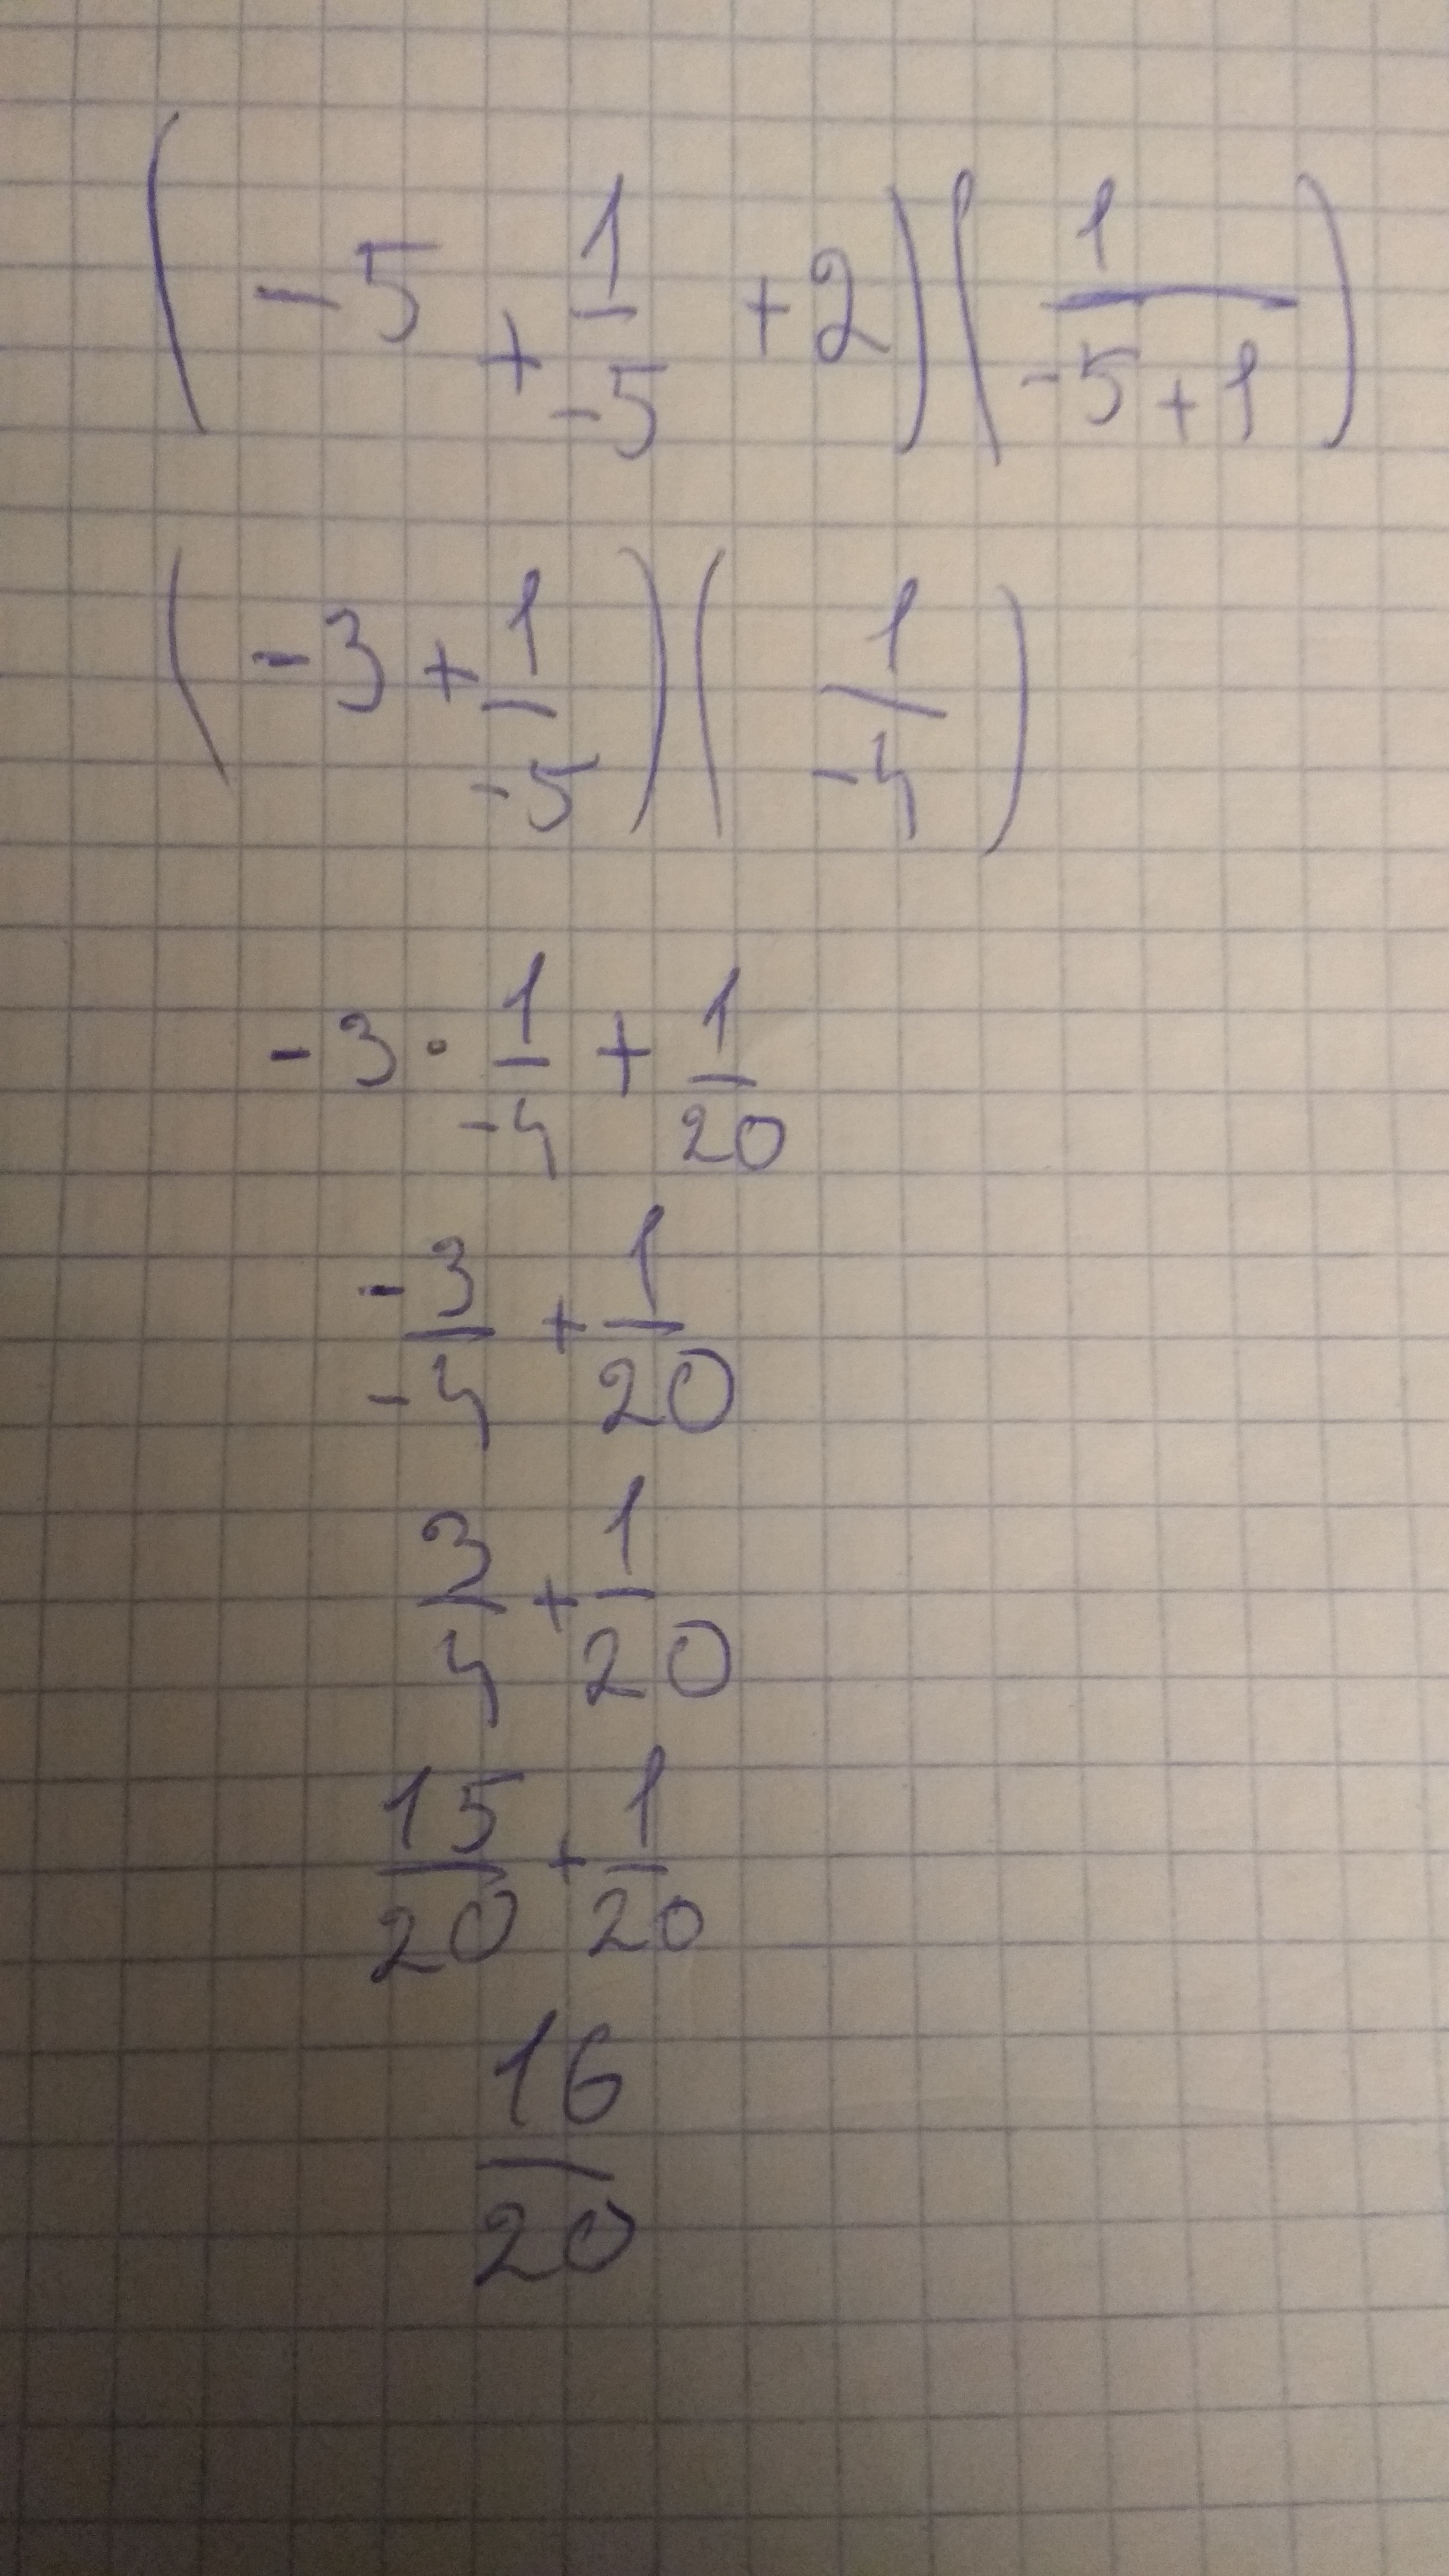 (-5 + 1/-5 + 2)(1/-5+1)
(-3 + 1/-5)(1/-4)
-3 · 1/-4 + 1/20
-3/-4 + 1/20
3/4 + 1/20
15/20 + 1/20
16/20